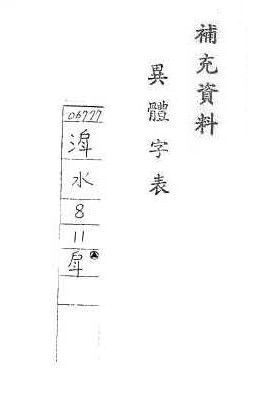 補充資料
異體字表
06777
水
8
11